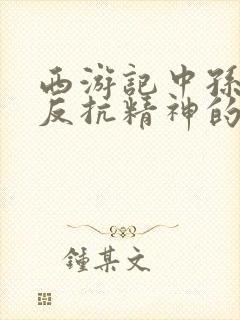 西游記中孫
反抗精神的
鍾某文